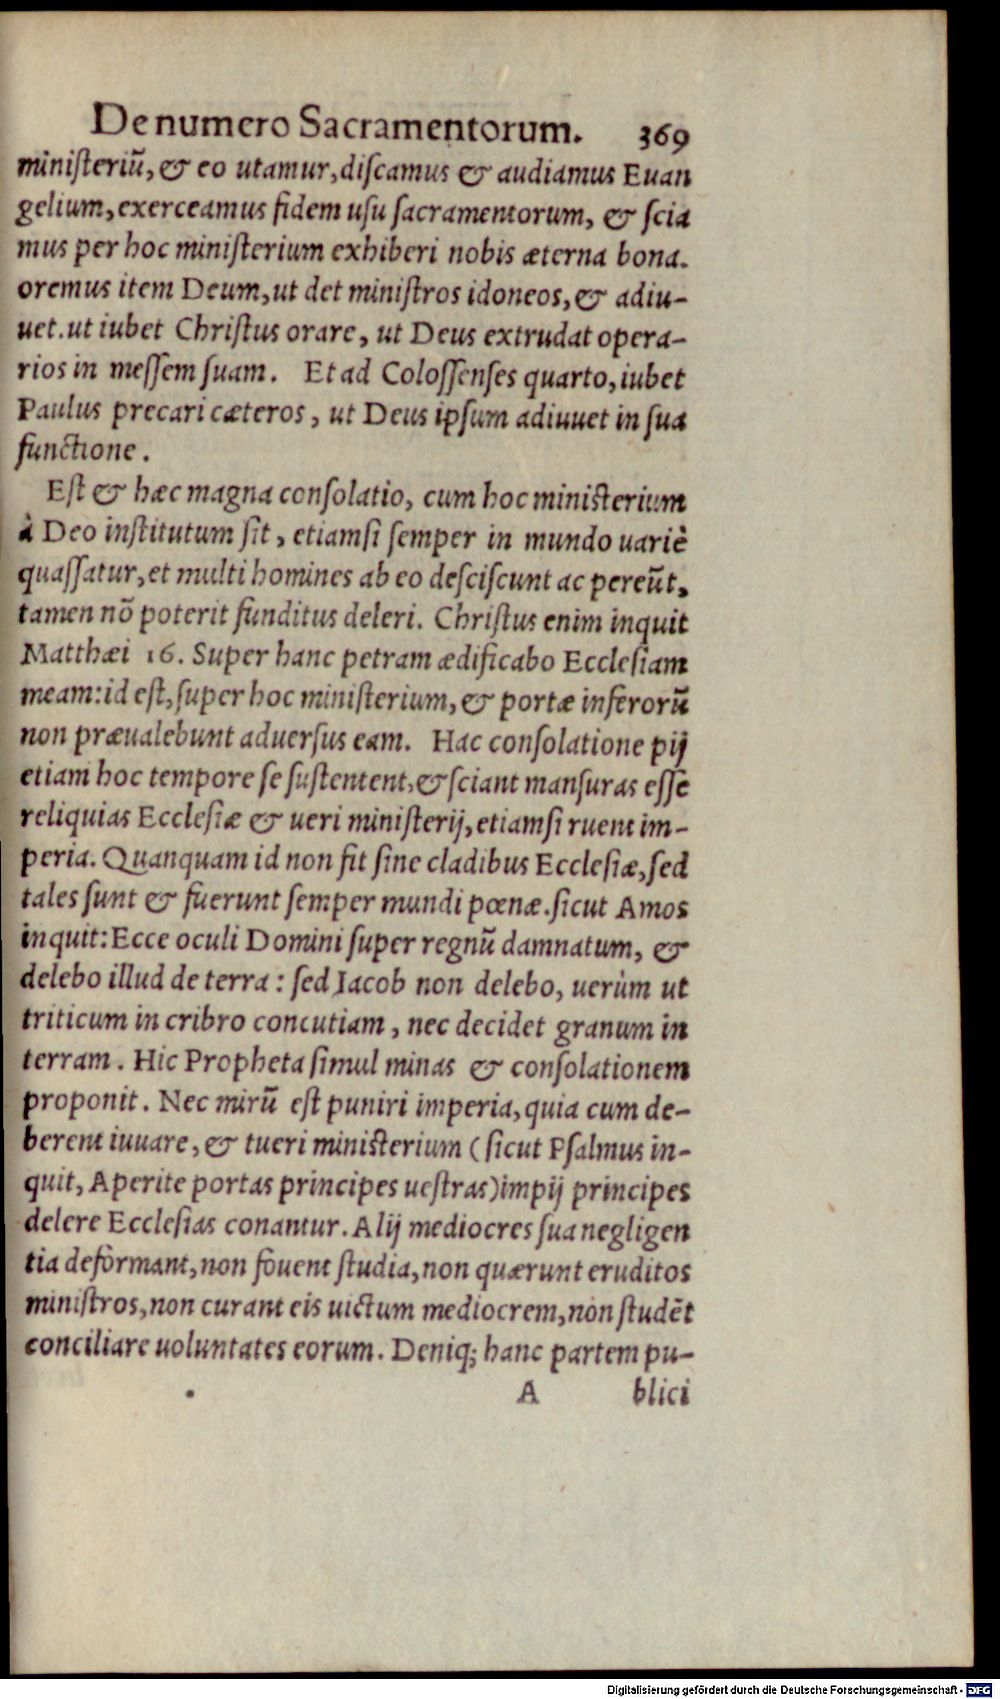 De numero Sacramentorum. 369
miniſteriū, & eo utamur, diſcamus & audiamus Euan
gelium, exerceamus fidem uſu ſacramentorum, & ſcia
mus per hoc miniſterium exhiberi nobis æterna bona.
oremus item Deum, ut det miniſtros idoneos, & adiu-
uet. ut iubet Chriſtus orare, ut Deus extrudat opera-
rios in meſſem ſuam. Et ad Coloſſenſes quarto, iubet
Paulus precari cæteros, ut Deus ipſum adiuuet in ſua
functione.
Eſt & hæc magna conſolatio, cum hoc miniſterium
à Deo inſtitutum ſit, etiamſi ſemper in mundo uariè
quaſſatur, et multi homines ab eo deſciſcunt ac pereūt,
tamen nō poterit funditus deleri. Chriſtus enim inquit
Matthæi 16. Super hanc petram ædificabo Eccleſiam
meam: id eſt, ſuper hoc miniſterium, & portæ inferorū
non præualebunt aduerſus eam. Hac conſolatione pij
etiam hoc tempore ſe ſuſtentent, & ſciant manſuras eſſe
reliquias Eccleſiæ & ueri miniſterij, etiamſi ruent im-
peria. Quanquam id non fit ſine cladibus Eccleſiæ, ſed
tales ſunt & fuerunt ſemper mundi pœnæ. ſicut Amos
inquit: Ecce oculi Domini ſuper regnū damnatum, &
delebo illud de terra: ſed Iacob non delebo, uerùm ut
triticum in cribro concutiam, nec decidet granum in
terram. Hic Propheta ſimul minas & conſolationem
proponit. Nec mirū eſt puniri imperia, quia cum de-
berent iuuare, & tueri miniſterium (ſicut Pſalmus in-
quit, Aperite portas principes ueſtras) impij principes
delere Eccleſias conantur. Alij mediocres ſua negligen
tia deformant, non fouent ſtudia, non quærunt eruditos
miniſtros, non curant eis uictum mediocrem, non ſtudēt
conciliare uoluntates eorum. Deniq; hanc partem pu-
A blici
Digitalisierung gefördert durch die Deutsche Forschungsgemeinschaft - DFG